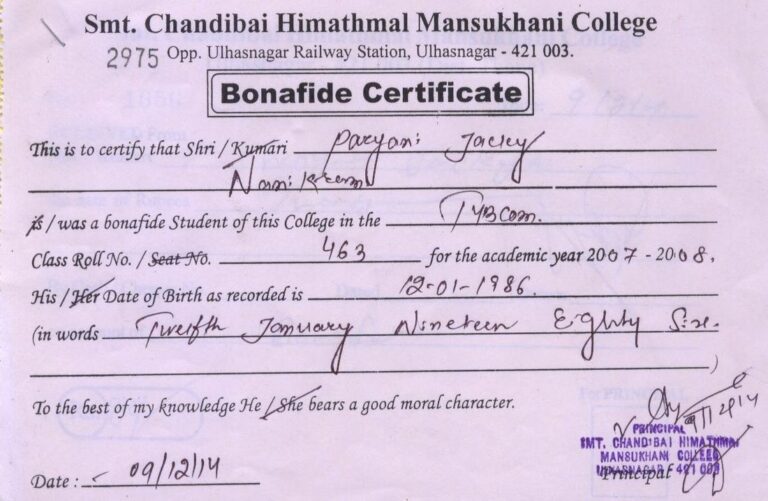 Smt. Chandibai Himathmal Mansukhani College
2975 Opp. Ulhasnagar Railway Station, Ulhasnagar - 421 003.
Bonafide Certificate
This is to certify that Shri / Kumari Paryani Jacky
Nanikram
is / was a bonafide Student of this College in the TYBCom.
Class Roll No. / Seat No. 463 for the academic year 2007 - 2008.
His / Her Date of Birth as recorded is 12-01-1986
(in words Twelfth January Nineteen Eighty Six.
)
To the best of my knowledge He / She bears a good moral character.
PRINCIPAL
SMT. CHANDIBAI HIMATHMAL
MANSUKHANI COLLEGE
ULHASNAGAR 421 003
Date : 09/12/14 Principal